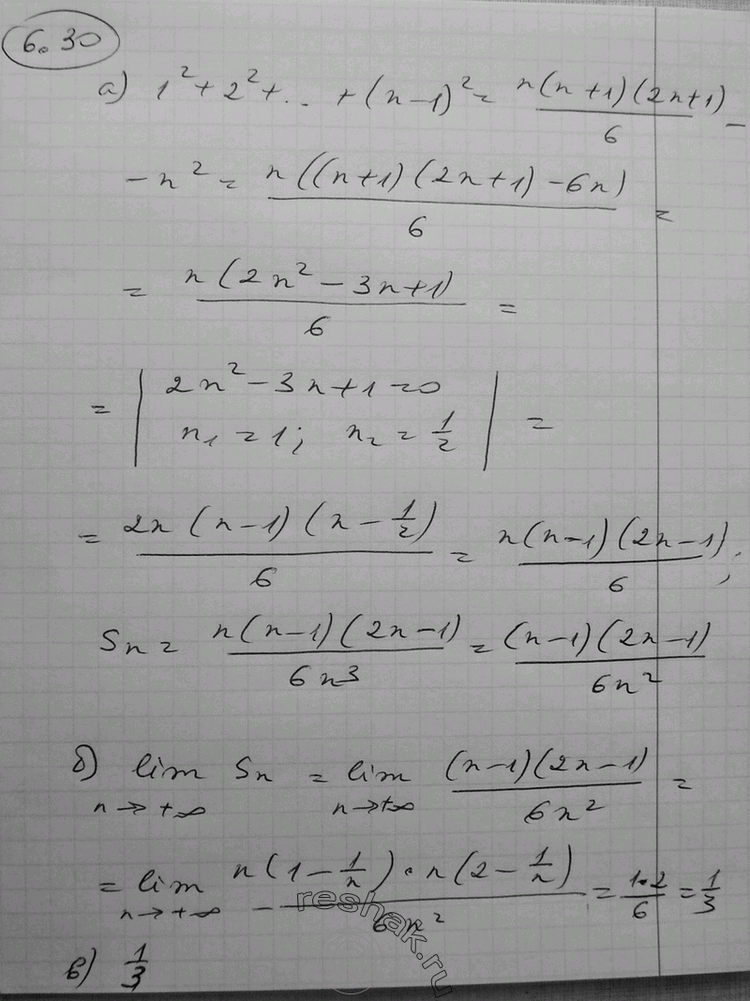 6.30
а) 1² + 2² + .. + (n-1)² = n(n+1)(2n+1)/6 -
- n² = n((n+1)(2n+1) - 6n)/6 =
= n(2n² - 3n+1)/6 =
= | 2n² - 3n+1 = 0
n₁ = 1; n₂ = 1/2 | =
= 2n(n-1)(n - 1/2)/6 = n(n-1)(2n-1)/6;
Sn = n(n-1)(2n-1)/6n³ = (n-1)(2n-1)/6n²
б) lim n→+∞ Sn = lim n→+∞ (n-1)(2n-1)/6n² =
= lim n→+∞ n(1 - 1/n)·n(2 - 1/n)/6n² = 1·2/6 = 1/3
в) 1/3
reshak.ru